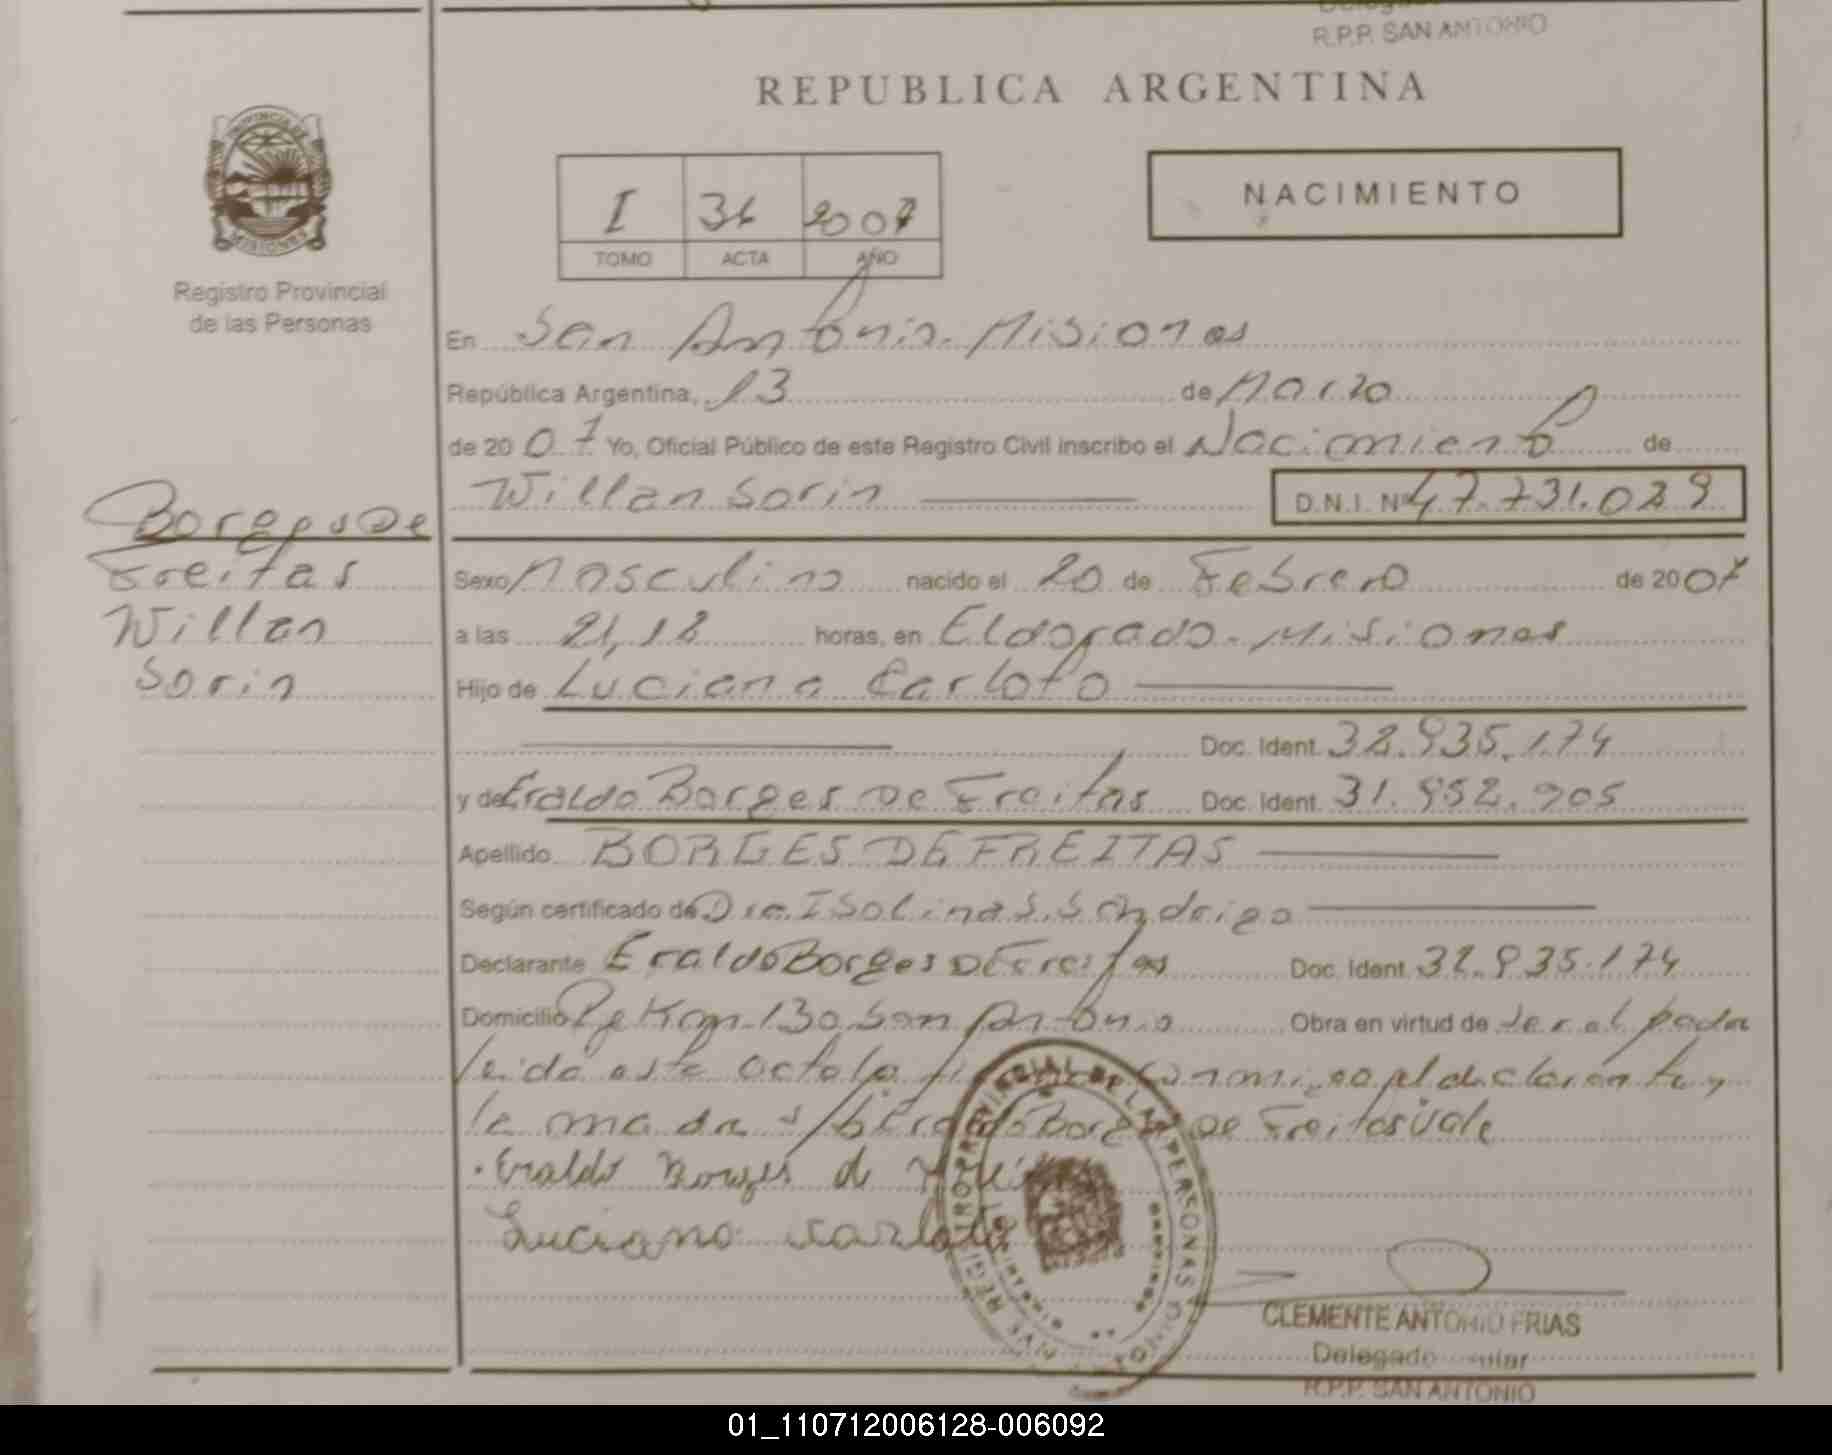 R.P.P. SAN ANTONIO
REPUBLICA ARGENTINA
PROVINCIA DE
MISIONES
Registro Provincial
de las Personas
I 36 2007
TOMO ACTA AÑO
NACIMIENTO
En San Antonio. Misiones
República Argentina, 13 de Marzo
de 2007 Yo, Oficial Público de este Registro Civil inscribo el Nacimiento de
Willan Sorin D.N.I. Nº 47.731.029
Borges De
Freitas
Willan
Sorin
Sexo Masculino nacido el 20 de Febrero de 2007
a las 21,12 horas, en Eldorado. Misiones
Hijo de Luciana Carloto
Doc. Ident. 32.935.174
y de Eraldo Borges De Freitas Doc. Ident. 31.952.905
Apellido BORGES DE FREITAS
Según certificado de Dra. Isolina S.
Declarante Eraldo Borges De Freitas Doc. Ident. 32.935.174
Domicilio Km 130 San Antonio Obra en virtud de ser el padre
leida este acta la conmigo el declarante y
la madre Borges De Freitas Vale
Eraldo Borges de
Luciano
CLEMENTE ANTONIO FRIAS
Delegado
R.P.P. SAN ANTONIO
01_110712006128-006092